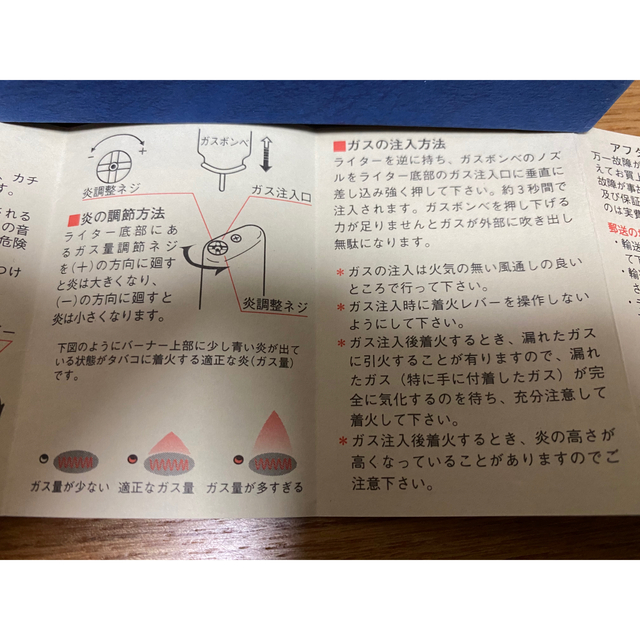 、カチ
す。
される
の音
危険
つけ
ー
－
＋
炎調整ネジ
ガスボンベ
ガス注入口
炎調整ネジ
■炎の調節方法
ライター底部にあ
るガス量調節ネジ
を(＋)の方向に廻す
と炎は大きくなり、
(ー)の方向に廻すと
炎は小さくなります。
下図のようにバーナー上部に少し青い炎が出て
いる状態がタバコに着火する適正な炎(ガス量)
です。
ガス量が少ない 適正なガス量 ガス量が多すぎる
■ガスの注入方法
ライターを逆に持ち、ガスボンベのノズ
ルをライター底部のガス注入口に垂直に
差し込み強く押して下さい。約３秒間で
注入されます。ガスボンベを押し下げる
力が足りませんとガスが外部に吹き出し
無駄になります。
＊ガスの注入は火気の無い風通しの良い
ところで行って下さい。
＊ガス注入時に着火レバーを操作しない
ようにして下さい。
＊ガス注入後着火するとき、漏れたガス
に引火することが有りますので、漏れ
たガス（特に手に付着したガス）が完
全に気化するのを待ち、充分注意して
着火して下さい。
＊ガス注入後着火するとき、炎の高さが
高くなっていることがありますのでご
注意下さい。
アフタ
万一故障が
えてお買上
故障が事
及び保証
のは実費
郵送の
・輸送
て下
・輸
さ